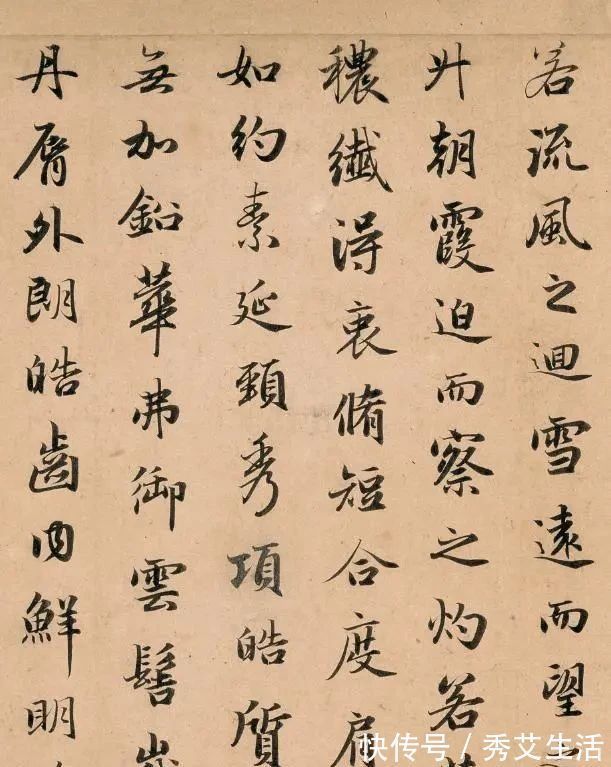 若流風之迴雪遠而望
升朝霞迫而察之灼若
穠纖得衷脩短合度肩
如約素延頸秀項皓質
無加鉛華弗御雲髻峩
丹脣外朗皓齒内鮮明
快传号 / 秀艾生活